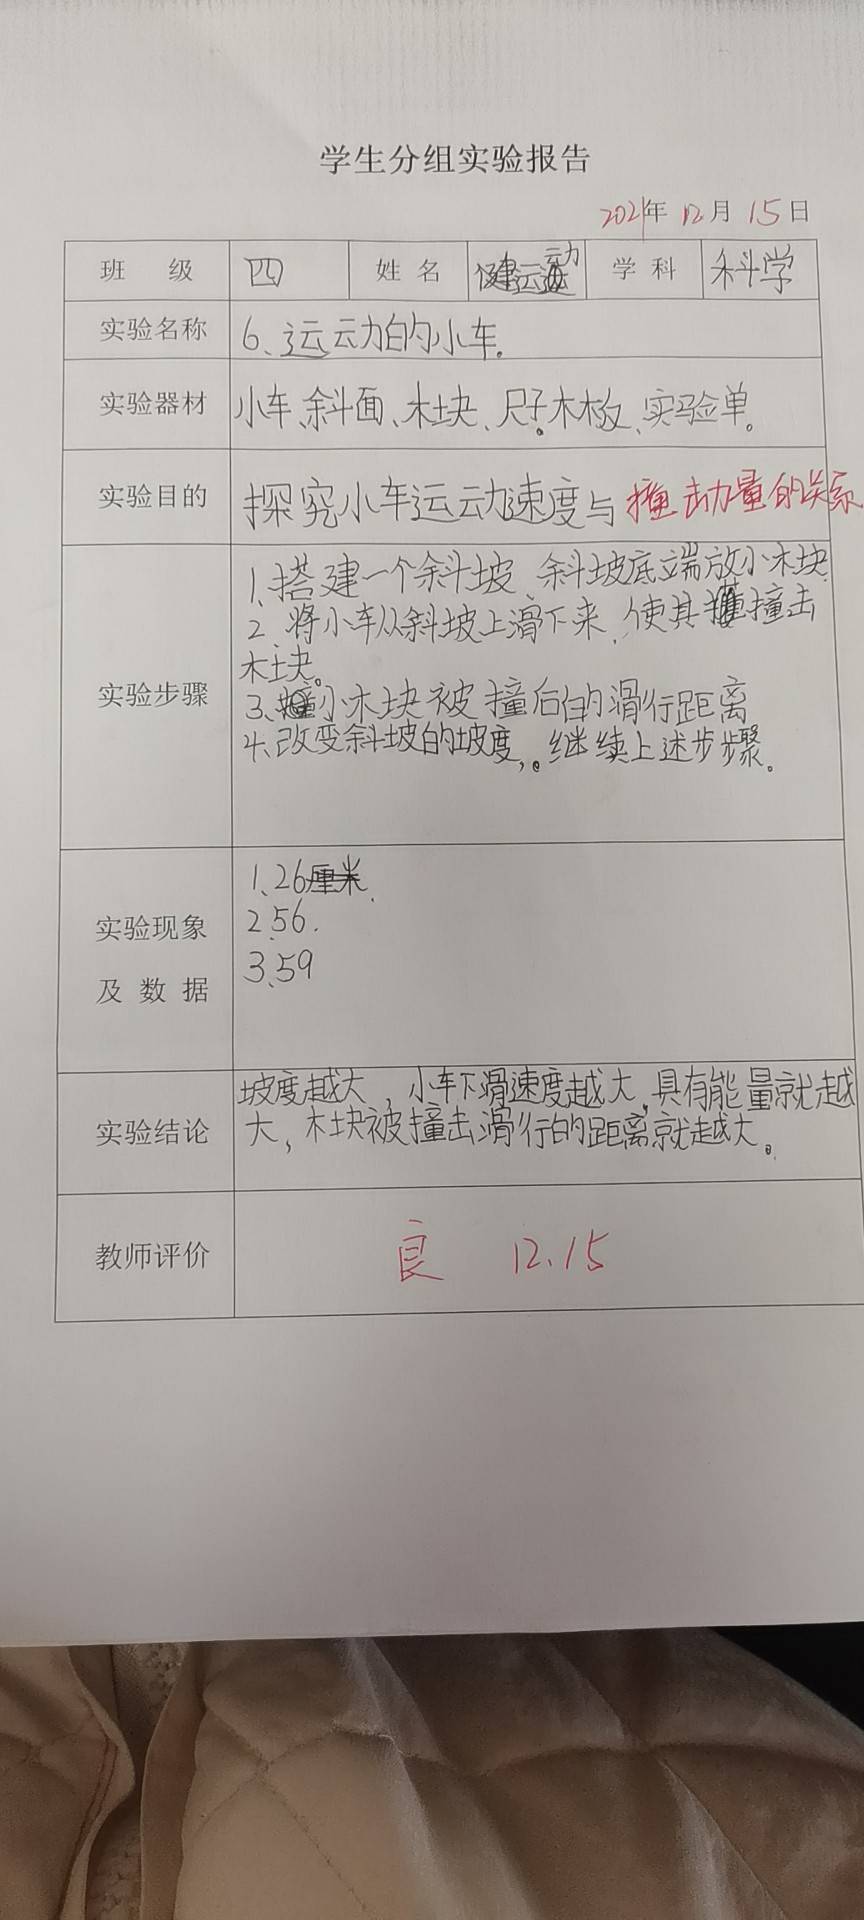 学生分组实验报告
2021年 12月 15日
班 级 四 姓 名 健运动 学 科 科学
实验名称 6、运动的小车。
实验器材 小车、斜面、木块、尺子。木板、实验单。
实验目的 探究小车运动速度与撞击力量的关系
实验步骤
1、搭建一个斜坡、斜坡底端放小木块
2、将小车从斜坡上滑下来,使其撞击
木块。
3、小木块被撞后的滑行距离
4、改变斜坡的坡度,。继续上述步骤。
实验现象
及 数 据
1、26厘米.
2、56.
3、59
实验结论
坡度越大,小车下滑速度越大,具有能量就越
大,木块被撞击滑行的距离就越大。
教师评价 良 12.15